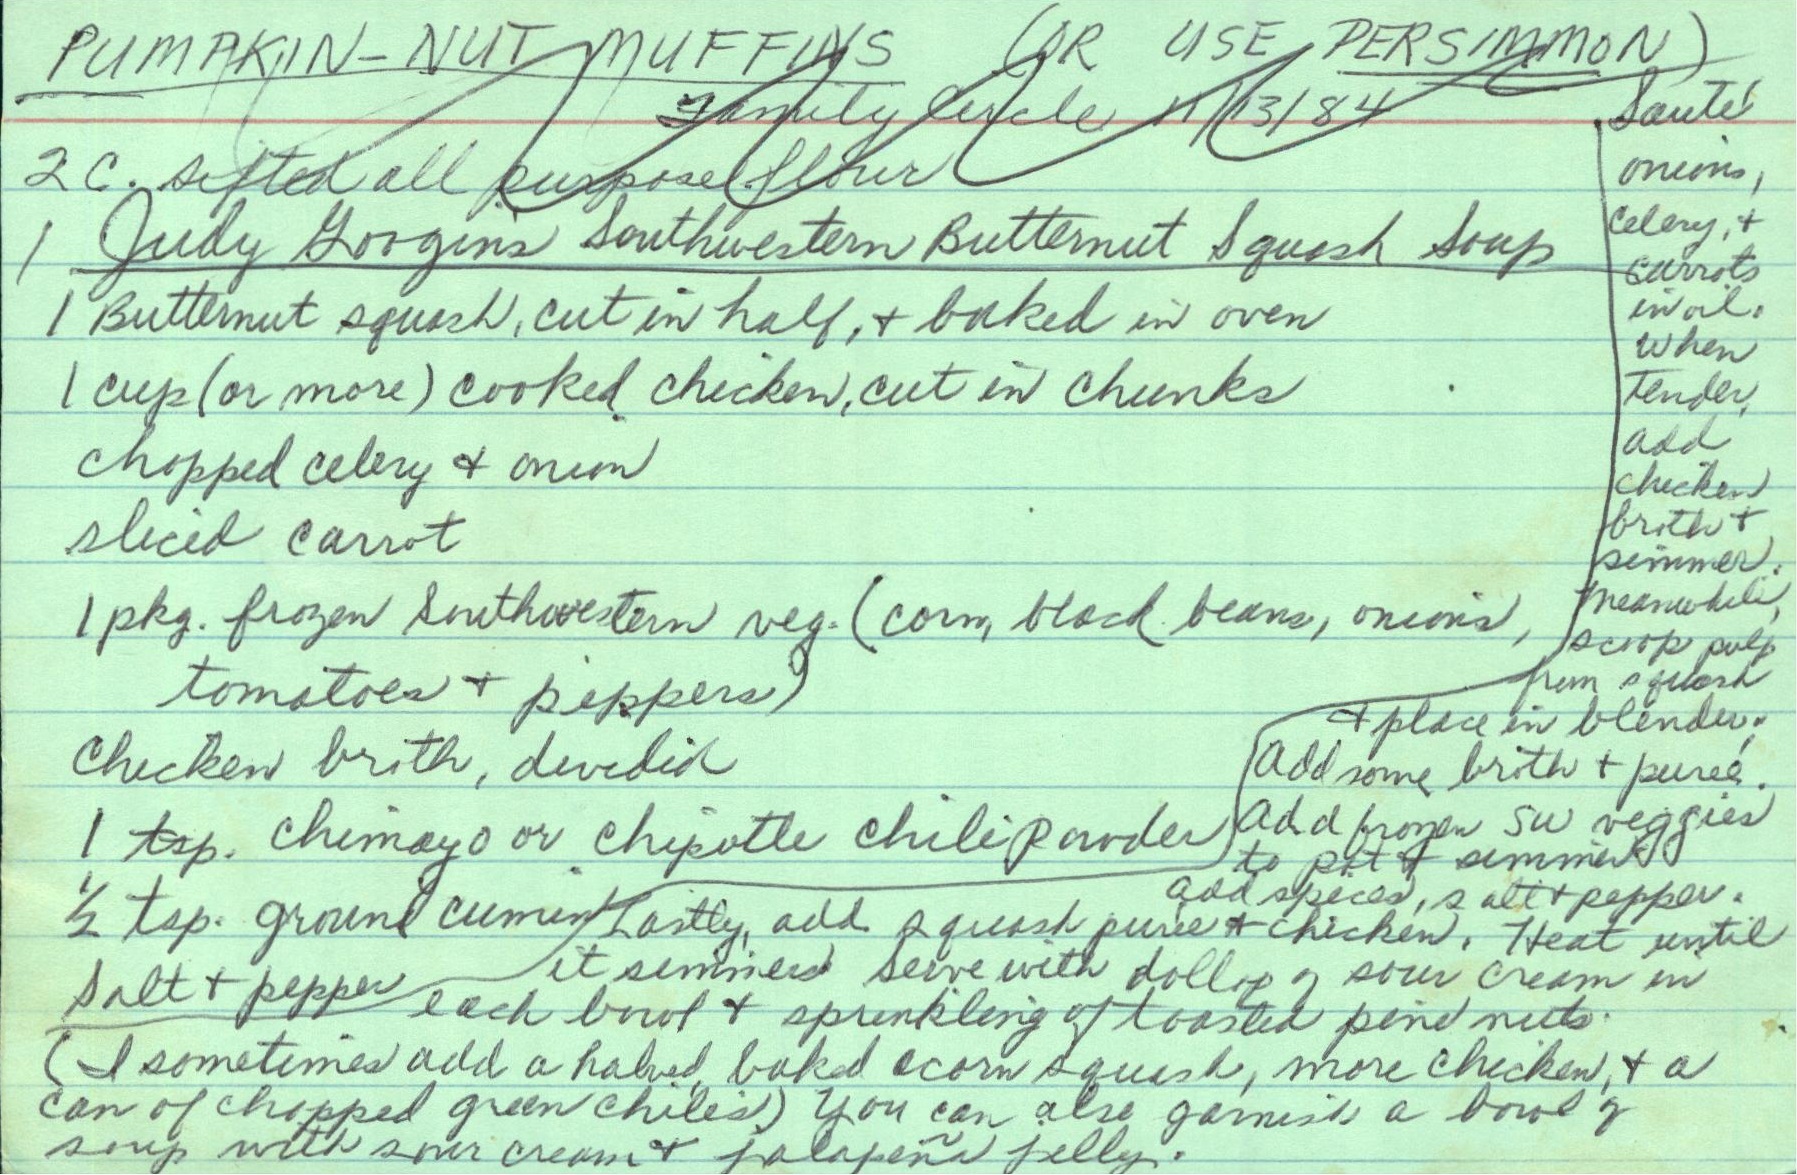 PUMPKIN-NUT MUFFINS (OR USE PERSIMMON)
Family Circle 11/13/84
2 C. sifted all purpose flour
1 Judy Goggin's Southwestern Butternut Squash Soup
1 Butternut squash, cut in half, + baked in oven
1 cup (or more) cooked chicken, cut in chunks
chopped celery + onion
sliced carrot
1 pkg. frozen Southwestern veg. (corn, black beans, onions,
tomatoes + peppers)
Chicken broth, divided
1 tsp. Chimayo or chipotle chili powder
1/2 tsp. ground cumin
Salt + pepper
Sauté
onions,
celery, +
carrots
in oil.
When
tender,
add
chicken
broth +
simmer.
Meanwhile,
scoop pulp
from squash
+ place in blender.
Add some broth + pureé.
Add frozen SW veggies
to pot + simmer
add spices, salt + pepper.
Lastly, add squash pureé + chicken. Heat until
it simmers Serve with dollop of sour cream in
each bowl + sprinkling of toasted pine nuts.
(I sometimes add a halved, baked acorn squash, more chicken, + a
can of chopped green chiles) You can also garnish a bowl of
soup with sour cream + jalapeña jelly.